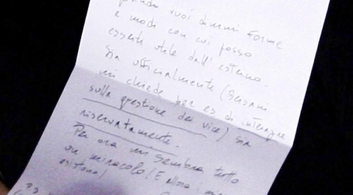 quando vuoi dirmi forme
e modi con cui posso
esserti utile dall'esterno
Sia ufficialmente (Bersani
mi chiede per es. di interagire
sulla questione dei vice) sia
riservatamente.
Per ora mi sembra tutto
un miracolo! E allora